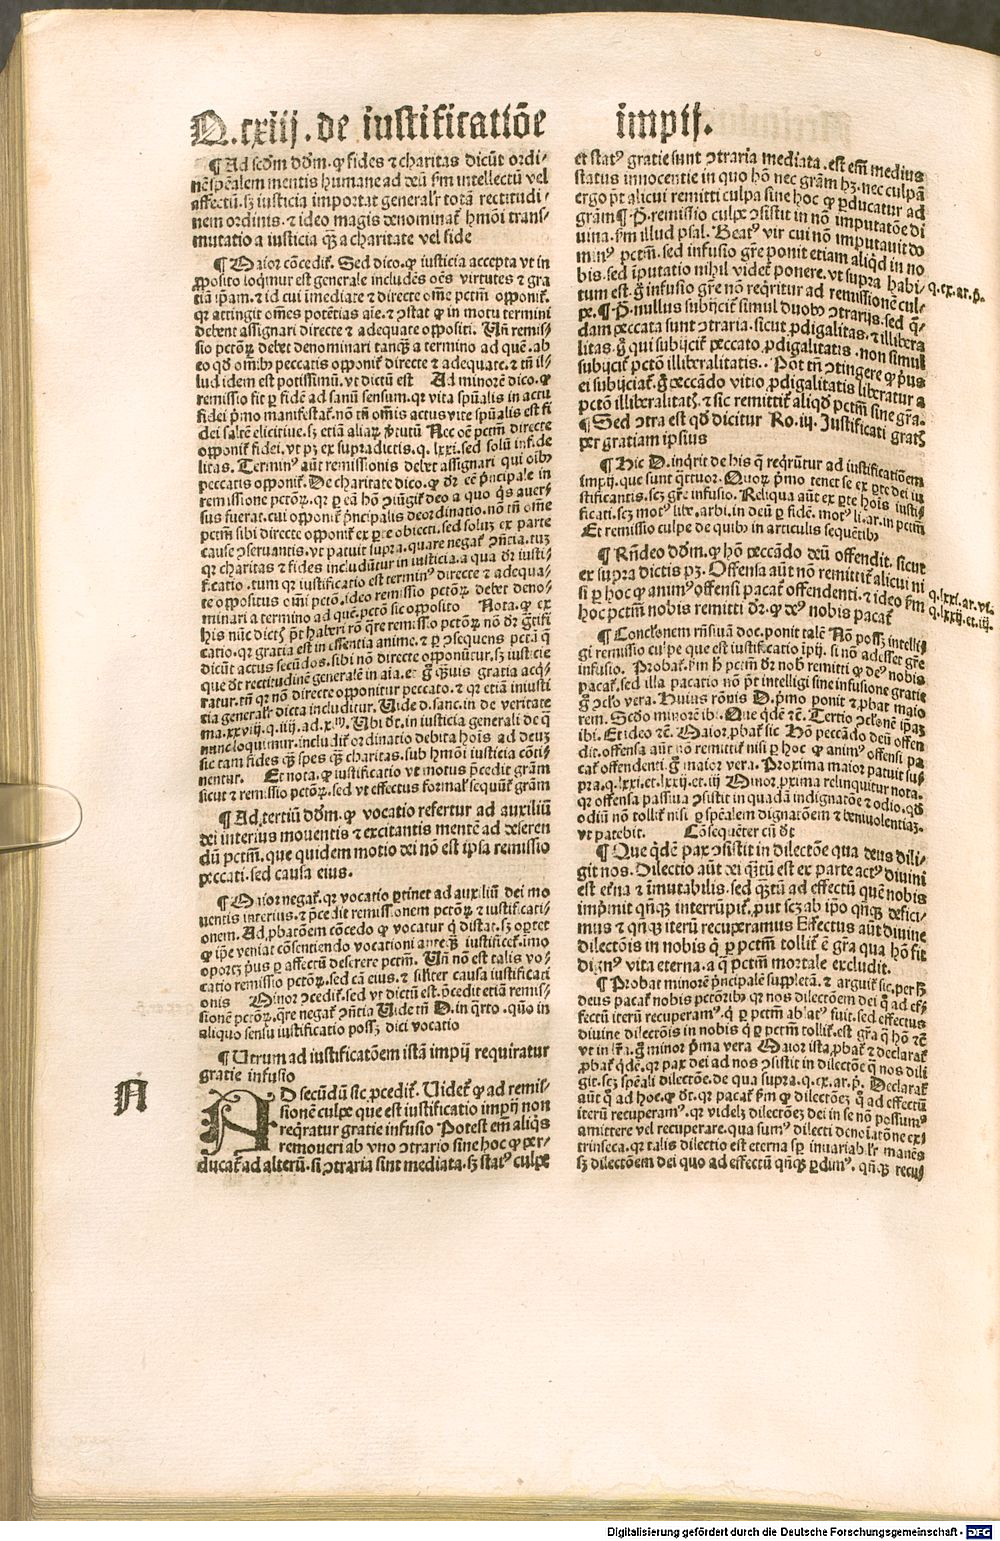 Q.cxiij.de iustificatiõe impij.
¶ Ad scđm dđm.ꝙ fides ⁊ charitas dicũt ordi-
nẽ spẽalem mentis humane ad deũ ẜm intellectũ vel
affectũ.sꝫ iusticia importat generalr̃ totã rectitudi-
nem ordinis.⁊ ideo magis denominat᷑ hmõi trans-
mutatio a iusticia qᷓꝫ a charitate vel fide
¶ Maior cõcedit᷑. Sed dico.ꝙ iusticia accepta vt in
ꝓposito loqimur est generale includẽs oẽs virtutes ⁊ gra
tiã ip̃am.⁊ id cui imediate ⁊ directe om̃e pctm̃ opponit᷑.
qꝛ attingit om̃es potẽtias aĩe.⁊ ꝯstat ꝙ in motu termini
debent assignari directe ⁊ adequate oppositi. Uñ remis-
sio pctõꝝ debet denominari tanqᷓꝫ a termino ad quẽ.ab
eo qđ om̃ibꝫ peccatis opponit᷑ directe ⁊ adequate.⁊ tñ il-
lud idem est potissimũ.vt dictũ est Ad minorẽ dico.ꝙ
remissio fit ꝑ fidẽ ad sanũ sensum.qꝛ vita spũalis in actu
fidei pͥmo manifestat᷑.nõ tñ om̃is actus vite spũalis est fi
dei saltẽ elicitiue.sꝫ etiã aliaꝝ ṽtutũ Nec oẽ pctm̃ directe
opponit᷑ fidei.vt pꝫ ex supradictis.q.lxxi.sed solũ infide
litas. Terminꝰ aũt remissionis debet assignari qui oĩbꝫ
peccatis opponit᷑. De charitate dico.ꝙ dr̃ eẽ pͥncipale in
remissione pctõꝝ.qꝛ ꝑ eã hõ ꝯiũgit᷑ deo a quo qͥs auer-
sus fuerat.cui opponit᷑ pͥncipalis deordinatio.nõ tñ om̃e
pctm̃ sibi directe opponit᷑ ex ꝑte obiecti.sed soluꝫ ex parte
cause ꝯseruantis.vt patuit supra.quare negat᷑ ꝯñtia.tuꝫ
qꝛ charitas ⁊ fides includũtur in iusticia.a qua dr̃ iusti-
ficatio.tum qꝛ iustificatio est terminꝰ directe ⁊ adequa-
te oppositus om̃i pctõ.ideo remissio pctõꝝ debet deno-
minari a termino ad quẽ.pctõ sic opposito Nota.ꝙ ex
his nũc dictꝭ pt̃ haberi rõ qͣre remissio pctõꝝ nõ dr̃ gr̃tifi
catio.qꝛ gratia est in essentia anime.⁊ ꝑ ꝯsequens pctã qͣ
dicũt actus secũdos.sibi nõ directe opponũtur.sꝫ iusticie
que dr̃t rectitudinẽ generalẽ in aĩa.et gͦ qᷓuis gratia acqͥ-
ratur.tñ qꝛ nõ directe opponitur peccato.⁊ qꝛ etiã iniusti
cia generalr̃ dicta includitur. Uide d.sanc.in de veritate
ma.xxviij.q.iiij.ad.xᵐ. Ubi dr̃t.in iusticia generali de qͣ
nunc loquimur.includit᷑ ordinatio debita hoĩs ad deuꝫ
sic tam fides qᷓꝫ spes qᷓꝫ charitas.sub hmõi iusticia cõti-
nentur. Et nota.ꝙ iustificatio vt motus p̃cedit gr̃am
sicut ⁊ remissio pctõꝝ.sed vt effectus formal᷑ sequũt᷑ gr̃am
¶ Ad.tertiũ dđm.ꝙ vocatio refertur ad auxiliũ
dei interius mouentis ⁊ excitantis mentẽ ad deseren
dũ pctm̃.que quidem motio dei nõ est ipsa remissio
peccati.sed causa eius.
¶ Maior negat᷑.qꝛ vocatio ꝑtinet ad auxiliũ dei mo
uentis interius.⁊ p̃cedit remissionem pctõꝝ ⁊ iustificati-
onem. Ad.ꝓbatõem cõcedo ꝙ vocatur qͥ distat.sꝫ oꝑtet
ꝙ ip̃e veniat cõsentiendo vocationi anteqᷓꝫ iustificet᷑.imo
oportꝫ pͥus ꝑ affectũ deserere pctm̃. Uñ nõ est talis vo-
catio remissio pctõꝝ.sed cã eius.⁊ siĩliter causa iustificati
onis Minor ꝯcedit᷑.sed vt dictũ est.p̃cedit etiã remis-
sionẽ pctõꝝ.qͣre negat᷑ ꝯñtia Uide tñ D.in qͣrto.quo in
aliquo sensu iustificatio possꝫ dici vocatio
¶ Utrum ad iustificatõem istã impij requiratur
gratie infusio
A
AD secũdũ sic ꝓcedit᷑. Uidet᷑ ꝙ ad remis-
sionẽ culpe que est iustificatio impij non
reqͥratur gratie infusio Potest em̃ aliqͥs
remoueri ab vno ꝯtrario sine hoc ꝙ per-
ducat᷑ ad alterũ.si ꝯtraria sint mediata.sꝫ statꝰ culpe
et statꝰ gratie sunt ꝯtraria mediata.est em̃ medius
status innocentie in quo hõ nec gr̃am hꝫ.nec culpã
ergo pt̃ alicui remitti culpa sine hoc ꝙ ꝑducatur ad
gr̃am ¶ P̃.remissio culpe ꝯsistit in nõ imputatõe di
uina.ẜm illud psal. Beatꝰ vir cui nõ imputauit do
minꝰ pctm̃.sed infusio gr̃e ponit etiam aliqͥd in no
bis.sed ĩputatio nihil videt᷑ ponere.vt supra habi
tum est.gͦ infusio gr̃e nõ reqͥritur ad remissionẽ cul-
pe. ¶ P̃.nullus subijcit᷑ simul duobꝫ ꝯtrarijs.sed q̃-
dam peccata sunt ꝯtraria.sicut ꝓdigalitas.⁊ illibera
litas.gͦ qui subijcit᷑ peccato ꝓdigalitatis.non simul
subijcit᷑ pctõ illiberalitatis.. Pot tñ ꝯtingere ꝙ pͥus
ei subijciat᷑.gͦ peccãdo vitio ꝓdigalitatis liberatur a
pctõ illiberalitatꝭ.⁊ sic remittit᷑ aliqđ pctm̃ sine gr̃a.
¶ Sed ꝯtra est qđ dicitur Ro.iij. Justificati gratꝭ
per gratiam ipsius
q.cx.ar.pͥ.
¶ Hic D.inqͥrit de his q̃ reqͥrũtur ad iustificatiõem
impij.que sunt qͣttuor. Quoꝝ pͥmo tenet se ex ꝑte dei iu
stificantis.scꝫ gr̃e infusio. Reliqua aũt ex ꝑte hoĩs iusti-
ficati.scꝫ motꝰ libe.arbi.in deũ ꝑ fidẽ.motꝰ li.ar.in pctm̃
Et remissio culpe de quibꝫ in articulis sequẽtibꝫ
¶ Rñdeo dđm.ꝙ hõ peccãdo deũ offendit.sicut
ex supra dictis pꝫ. Offensa aũt nõ remittit᷑ alicui ni
si ꝑ hoc ꝙ animꝰ offensi pacat᷑ offendenti.⁊ ideo ẜm
hoc pctm̃ nobis remitti dr̃.ꝙ deꝰ nobis pacat᷑
q.lxxi.ar.vi.
q.lxxij.et.iij.
¶ Conclonem rñsiuã doc.ponit talẽ Nõ possꝫ intelli-
gi remissio culpe que est iustificatio ĩpij.si nõ adesset gr̃e
infusio. Probat᷑.ẜm hͦ pctm̃ dr̃ nob̃ remitti ꝙ deꝰ nobis
pacat᷑.sed illa pacatio nõ pt̃ intelligi sine infusione gratie
gͦ ꝯclo vera. Huius rõnis D.pͥmo ponit ⁊ ꝓbat maio
rem. Scđo minorẽ ibi. Que qͥdẽ ⁊c̃. Tertio ꝯclonẽ ip̃aꝫ
ibi. Et ideo ⁊c̃. Maior ꝓbat᷑ sic Hõ peccãdo deũ offen
dit.offensa aũt nõ remittit᷑ nisi ꝑ hoc ꝙ animꝰ offensi pa
cat᷑ offendenti.gͦ maior vera. Proxima maior patuit su-
pra.q.lxxi.et.lxxij.et iij Minor ꝓxima relinquitur nota.
qꝛ offensa passiua ꝯsistit in quadã indignatõe ⁊ odio.qđ
odiũ nõ tollit᷑ nisi ꝑ spẽalem dignatõem ⁊ beniuolentiaꝫ.
vt patebit. Cõsequẽter cũ dr̃t
¶ Que qͥdẽ pax ꝯsistit in dilectõe qua deus dili-
git nos. Dilectio aũt dei qᷓtũ est ex parte actꝰ diuini
est et̃na ⁊ ĩmutabilis.sed qᷓtũ ad effectũ quẽ nobis
impͥmit qñqꝫ interrũpit᷑.ꝓut scꝫ ab ip̃o qñqꝫ defici-
mus ⁊ qñqꝫ iterũ recuperamus Effectus aũt diuine
dilectõis in nobis qͥ ꝑ pctm̃ tollit᷑ ẽ gr̃a qua hõ fit
dignꝰ vita eterna.a qͣ pctm̃ mortale excludit.
¶ Probat minorẽ pͥncipalẽ suppletã.⁊ arguit᷑ sic.per hͦ
deus pacat᷑ nobis pctõribꝫ qꝛ nos dilectõem dei qͣ ad ef-
fectũ iterũ recuperamꝰ.qͥ ꝑ pctm̃ ablatꝰ fuit.sed effectus
diuine dilectõis in nobis qͥ ꝑ pctm̃ tollit᷑.est gr̃a qͣ hõ ⁊c̃
vt in lr̃a.gͦ minor pͥma vera Maior ista.ꝓbat᷑ ⁊ declarat᷑
ꝓbat᷑ qͥdẽ.qꝛ pax dei ad nos ꝯsistit in dilectõe qͣ nos dili
git.scꝫ spẽali dilectõe.de qua supra.q.cx.ar.pͥ. Declarat᷑
aũt qͣ ad hoc.ꝙ dr̃t.qꝛ pacat᷑ ẜm ꝙ dilectõeꝫ qͣ ad effectũ
iterũ recuperamꝰ.qꝛ videlꝫ dilectõeꝫ dei in se nõ possumꝰ
amittere vel recuperare.qua sumꝰ dilecti denoĩatõne ex-
trinseca.qꝛ talis dilectio est eterna sp̃ inuariabilr̃ manẽs
sꝫ dilectõem dei quo ad effectũ qñqꝫ ꝑdimꝰ.qñqꝫ recu-
Digitalisierung gefördert durch die Deutsche Forschungsgemeinschaft - DFG